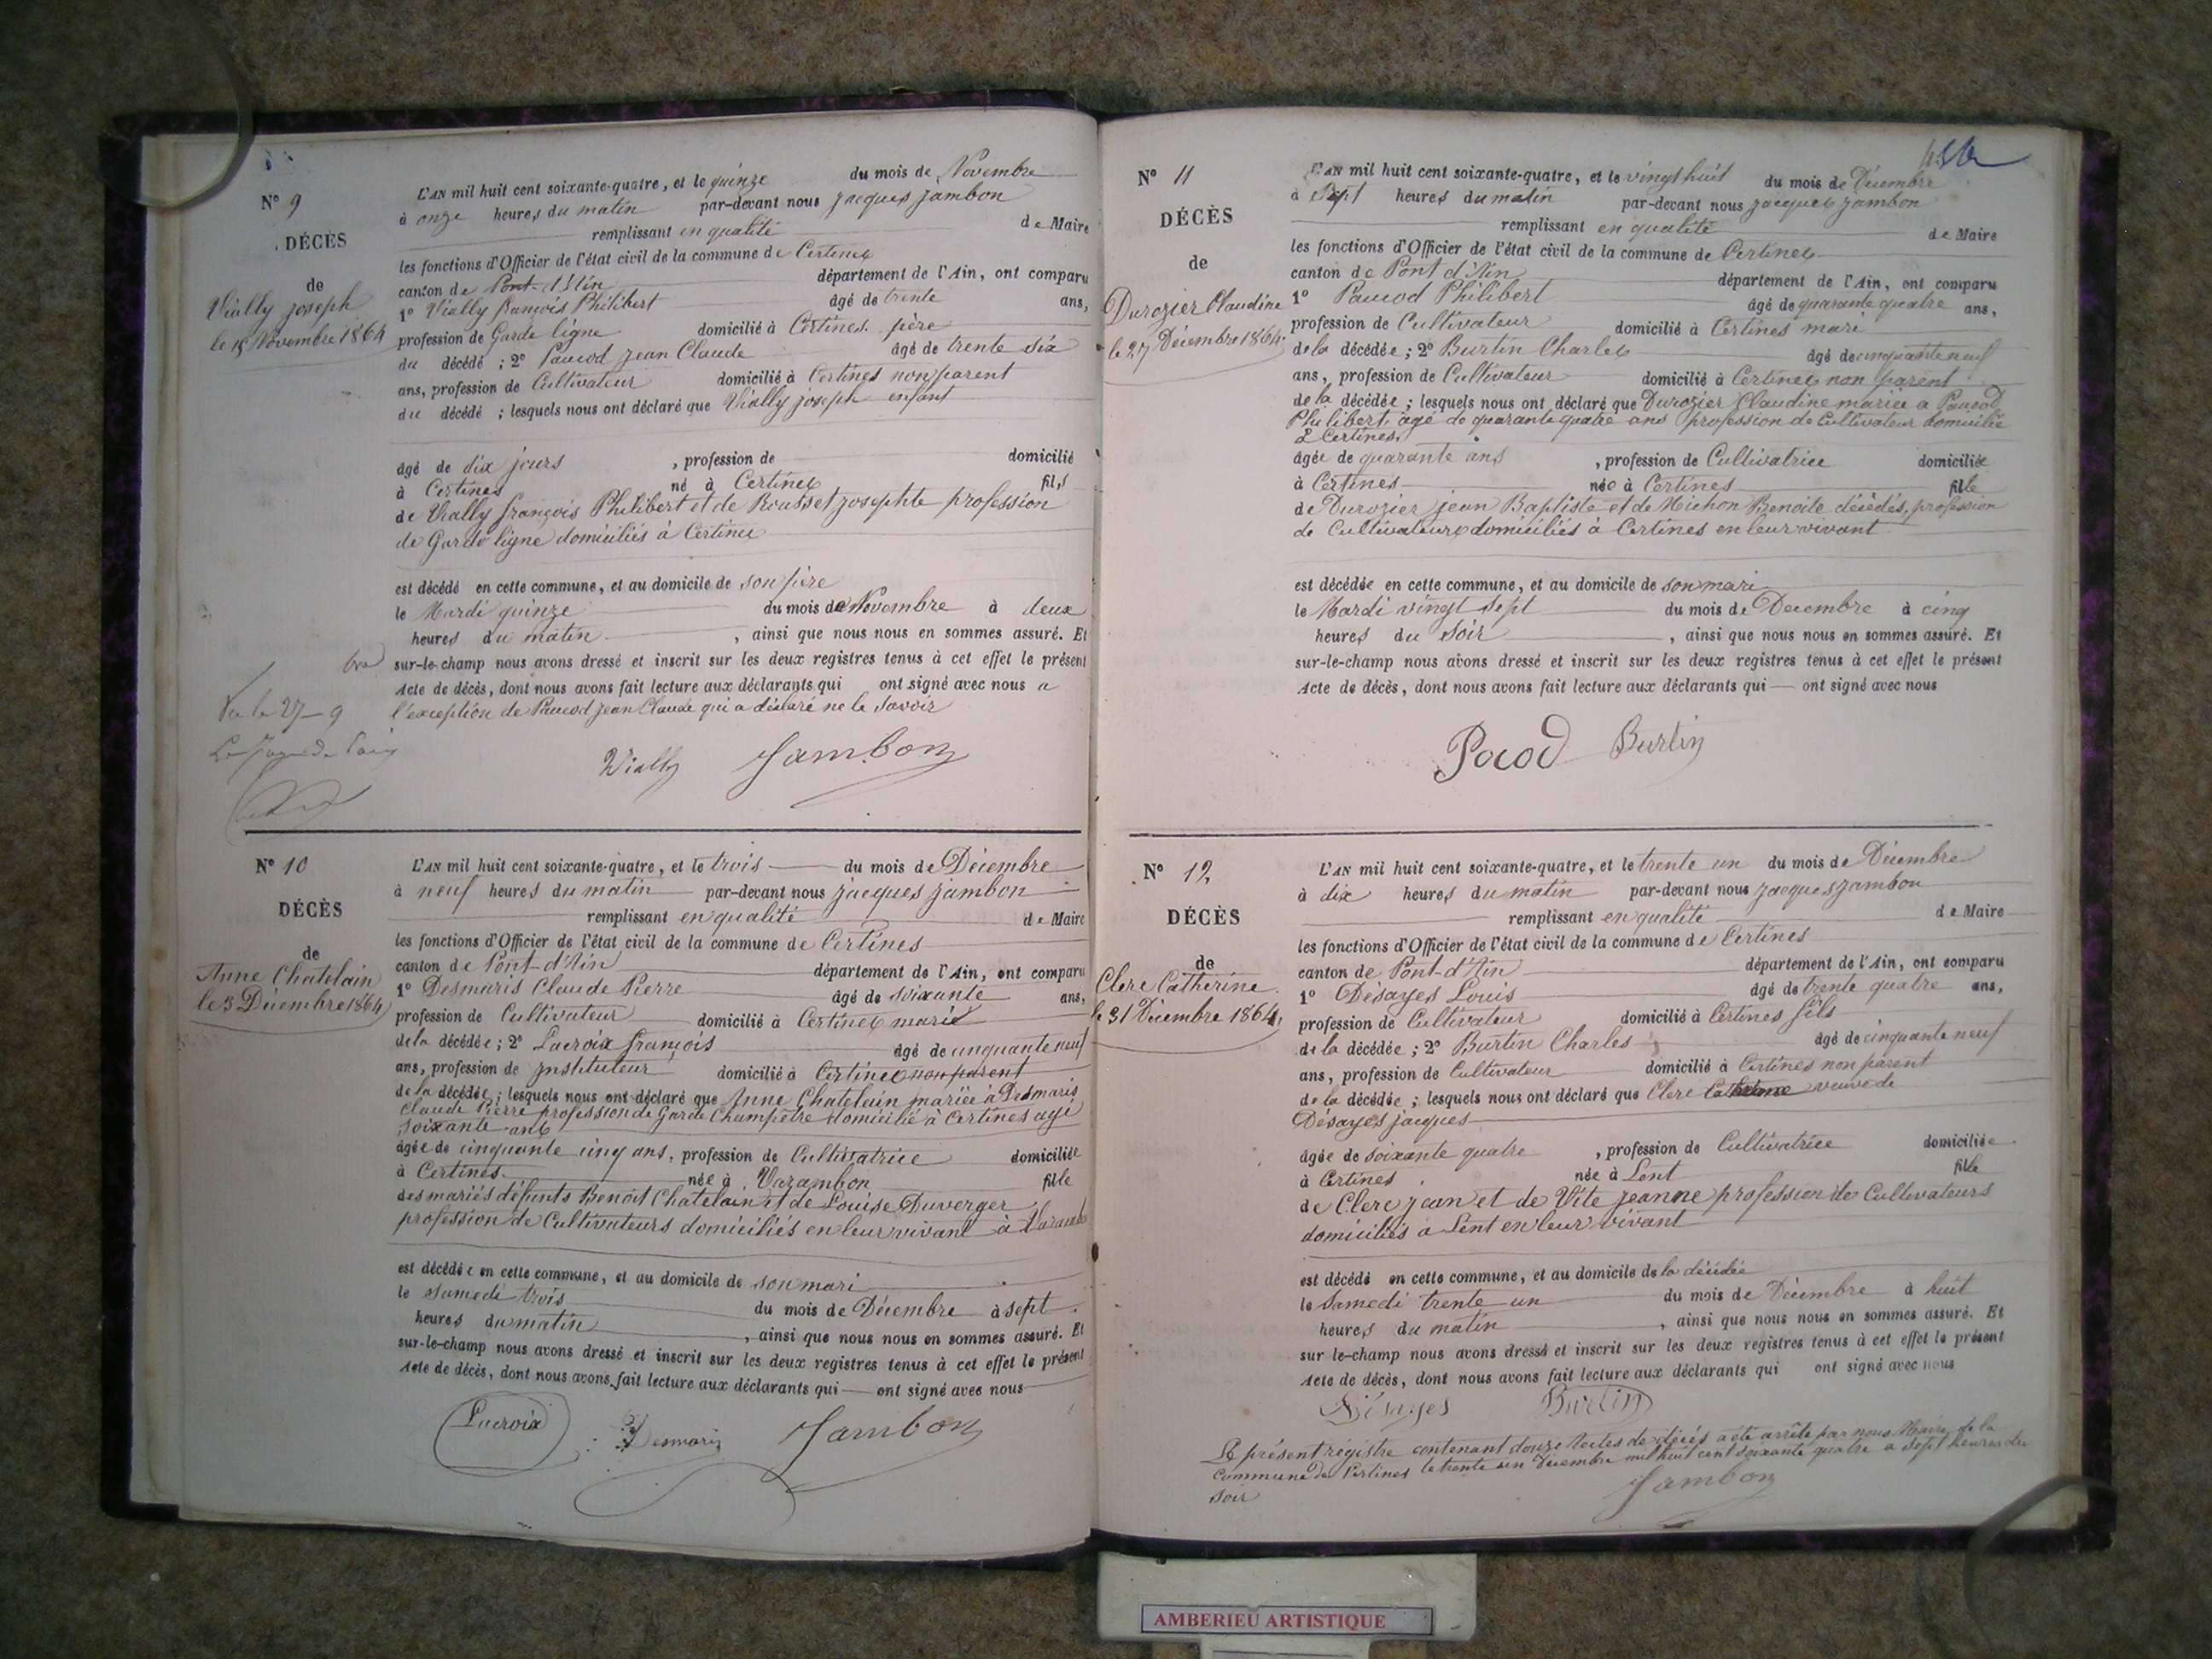 N° 9
DÉCÈS
de
Vially joseph
le 15 Novembre 1864
L'AN mil huit cent soixante-quatre, et le quinze du mois de Novembre
à onze heures du matin par-devant nous jacques jambon
remplissant en qualité de Maire
les fonctions d'Officier de l'état civil de la commune de Certines
canton de Pont-d'Ain département de l'Ain, ont comparu
1° Vially françois Philibert âgé de trente ans,
profession de Garde ligne domicilié à Certines père
du décédé ; 2° Paucod jean Claude âgé de trente six
ans, profession de Cultivateur domicilié à Certines non parent
du décédé ; lesquels nous ont déclaré que Vially joseph enfant
âgé de dix jours , profession de domicilié
à Certines né à Certines fils
de Vially françois Philibert et de Rousset josephte profession
de Garde ligne domiciliés à Certines
est décédé en cette commune, et au domicile de son père
le Mardi quinze du mois de Novembre à deux
heures du matin , ainsi que nous nous en sommes assuré. Et
sur-le-champ nous avons dressé et inscrit sur les deux registres tenus à cet effet le présent
Acte de décès, dont nous avons fait lecture aux déclarants qui ont signé avec nous a
l'exception de Paucod jean Claude qui a déclaré ne le savoir
Vu le 27 – 9
Vially Jambon
N° 10
DÉCÈS
de
Anne Chatelain
le 3 Décembre 1864
L'AN mil huit cent soixante-quatre, et le trois du mois de Décembre
à neuf heures du matin par-devant nous jacques jambon
remplissant en qualité de Maire
les fonctions d'Officier de l'état civil de la commune de Certines
canton de Pont-d'Ain département de l'Ain, ont comparu
1° Desmaris Claude Pierre âgé de soixante ans,
profession de Cultivateur domicilié à Certines marié
de la décédée ; 2° Lacroix françois âgé de cinquante neuf
ans, profession de instituteur domicilié à Certines non parent
de la décédée ; lesquels nous ont déclaré que Anne Chatelain mariée à Desmaris
Claude Pierre profession de Garde Champêtre domicilié à Certines agé
soixante ans
âgée de cinquante cinq ans, profession de Cultivatrice domiciliée
à Certines née à Varambon fille
des mariés défunts Benoit Chatelain et de Louise Duverger
profession de Cultivateurs domiciliés en leur vivant à Varamb
est décédée en cette commune, et au domicile de son mari
le samedi trois du mois de Décembre à sept
heures du matin , ainsi que nous nous en sommes assuré. Et
sur-le-champ nous avons dressé et inscrit sur les deux registres tenus à cet effet le présent
Acte de décès, dont nous avons fait lecture aux déclarants qui ont signé avec nous
Lacroix Desmaris Jambon
N° 11
DÉCÈS
de
Durozier Claudine
le 27 Décembre 1864
L'AN mil huit cent soixante-quatre, et le vingt huit du mois de Décembre
à Sept heures du matin par-devant nous jacques jambon
remplissant en qualité de Maire
les fonctions d'Officier de l'état civil de la commune de Certines
canton de Pont d'Ain département de l'Ain, ont comparu
1° Paucod Philibert âgé de quarante quatre ans,
profession de Cultivateur domicilié à Certines mari
de la décédée ; 2° Burtin Charles âgé de cinquante neuf
ans, profession de Cultivateur domicilié à Certines non parent
de la décédée ; lesquels nous ont déclaré que Durozier Claudine mariée a Paucod
Philibert, agé de quarante quatre ans profession de Cultivateur domicilié
à Certines,
âgée de quarante ans , profession de Cultivatrice domiciliée
à Certines née à Certines fille
de Durozier jean Baptiste et de Michon Benoite décédés, profession
de Cultivateurs domiciliés à Certines en leur vivant
est décédée en cette commune, et au domicile de son mari
le Mardi vingt sept du mois de Decembre à cinq
heures du soir , ainsi que nous nous en sommes assuré. Et
sur-le-champ nous avons dressé et inscrit sur les deux registres tenus à cet effet le présent
Acte de décès, dont nous avons fait lecture aux déclarants qui ont signé avec nous
Pocod Burtin
N° 12
DÉCÈS
de
Clerc Catherine
le 31 Décembre 1864
L'AN mil huit cent soixante-quatre, et le trente un du mois de Décembre
à dix heures du matin par-devant nous jacques jambon
remplissant en qualité de Maire
les fonctions d'Officier de l'état civil de la commune de Certines
canton de Pont-d'Ain département de l'Ain, ont comparu
1° Désayes Louis âgé de trente quatre ans,
profession de Cultivateur domicilié à Certines fils
de la décédée ; 2° Burtin Charles âgé de cinquante neuf
ans, profession de Cultivateur domicilié à Certines non parent
de la décédée ; lesquels nous ont déclaré que Clerc Catherine veuve de
Désayes jacques
âgée de soixante quatre , profession de Cultivatrice domiciliée
à Certines née à Lent fille
de Clerc jean et de Vite jeanne profession de Cultivateurs
domiciliés à Lent en leur vivant
est décédé en cette commune, et au domicile de la décédée
le Samedi trente un du mois de Décembre à huit
heures du matin , ainsi que nous nous en sommes assuré. Et
sur le-champ nous avons dressé et inscrit sur les deux registres tenus à cet effet le présent
Acte de décès, dont nous avons fait lecture aux déclarants qui ont signé avec nous
Désayes Burtin
Le présent régistre contenant douze Actes de décès a été arrêté par nous Maire de la
Commune de Certines le trente un Decembre mil huit cent soixante quatre a sept heures du
soir
Jambon
AMBERIEU ARTISTIQUE